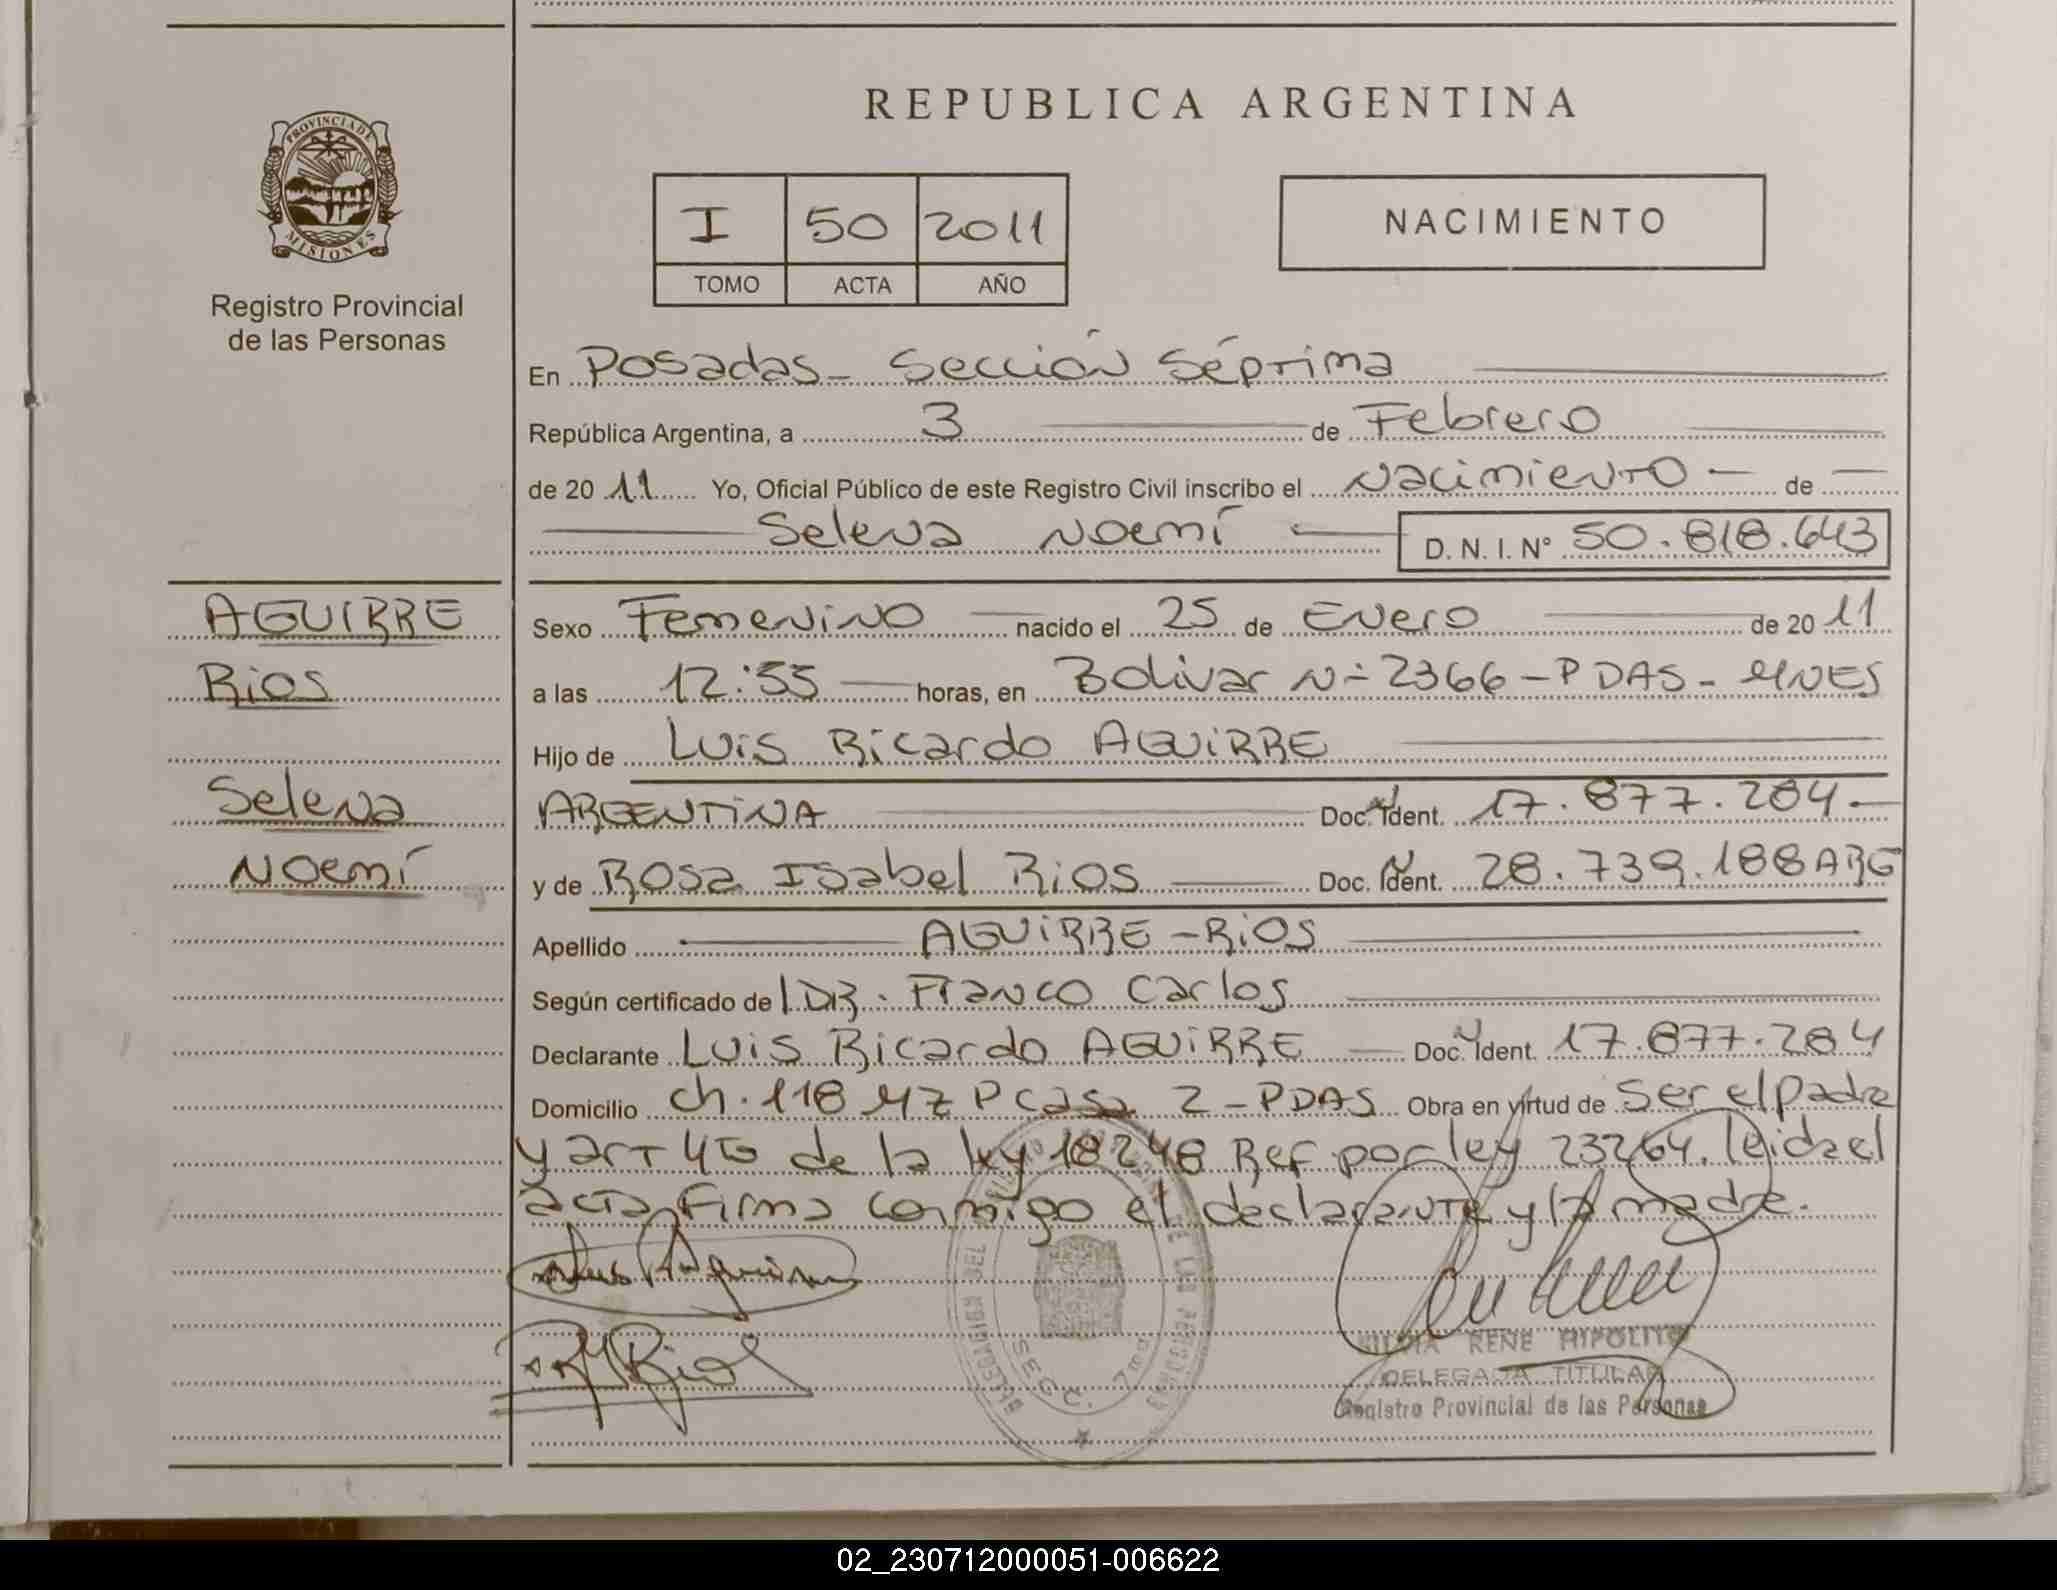 REPUBLICA ARGENTINA
PROVINCIA DE
MISIONES
Registro Provincial
de las Personas
I 50 2011
TOMO ACTA AÑO
NACIMIENTO
En Posadas - Sección Séptima
República Argentina, a 3 de Febrero
de 20 11 Yo, Oficial Público de este Registro Civil inscribo el Nacimiento de
Selena Noemí D. N. I. Nº 50.818.643
AGUIRRE
Rios
Selena
Noemí
Sexo Femenino nacido el 25 de Enero de 20 11
a las 12:55 horas, en Bolivar Nº 2366 - PDAS - MNES
Hijo de Luis Ricardo AGUIRRE
ARGENTINA Doc. Ident. 17.877.284
y de Rosa Isabel Rios Doc. Ident. 28.739.188 ARG
Apellido AGUIRRE - RiOS
Según certificado de DR. Franco Carlos
Declarante Luis Ricardo AGUIRRE Doc. Ident. 17.877.284
Domicilio ch. 118 MZ P casa 2 - PDAS Obra en virtud de Ser el padre
y art 45 de la ley 18248 Ref por ley 23264. leida el
acta firma conmigo el declarante y la madre.
SILVIA RENE HIPOLITO
DELEGADA TITULAR
Registro Provincial de las Personas
SECC. 7ma
02_230712000051-006622